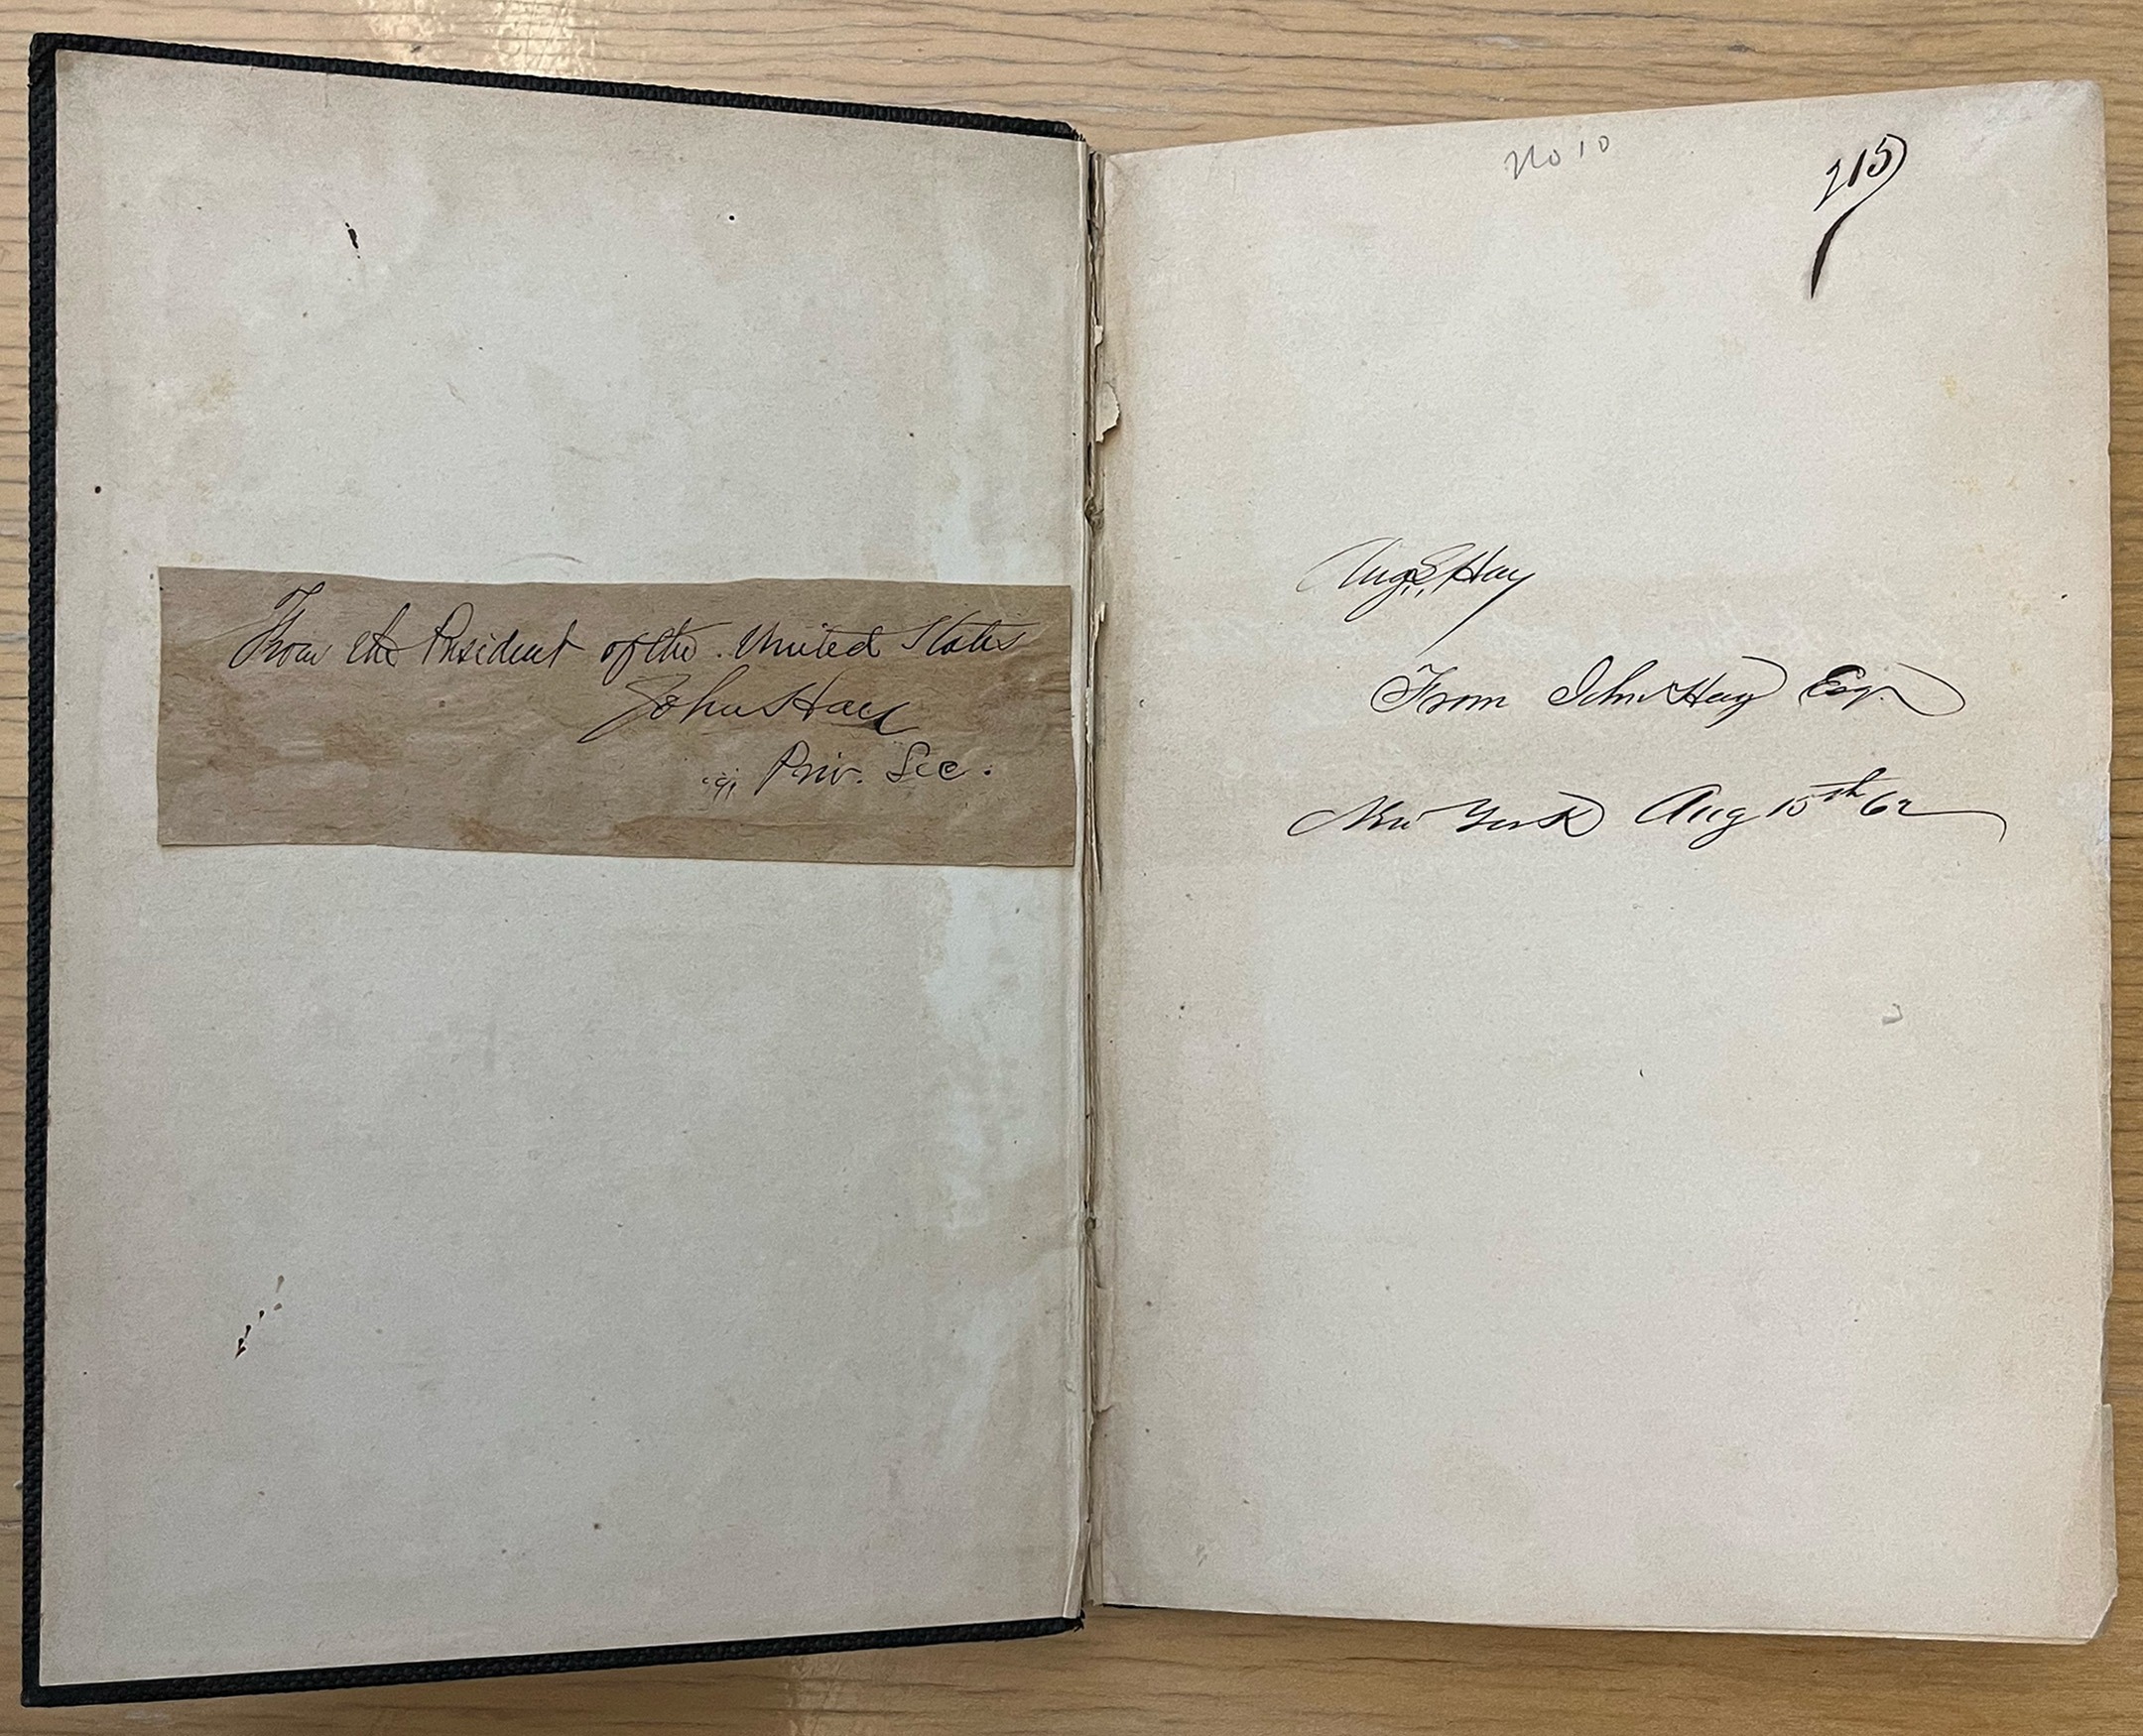 From the President of the United States
John Hay
Priv. Sec.
No 10
215
Aug. S. Hay
From John Hay Esq.
New York Aug 15th 62